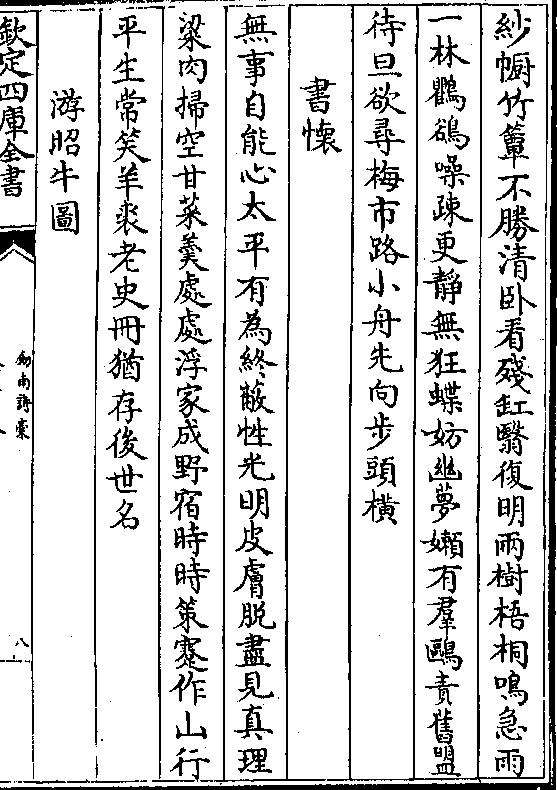 紗㡡竹簟不勝清卧看殘缸翳復明兩樹梧桐鳴急雨
一林鸛鶴噪疎更靜無狂蝶妨幽夢嬾有羣鷗責舊盟
待旦欲尋梅市路小舟先向步頭橫
書懷
無事自能心太平有為終蔽性光明皮膚脫盡見真理
粱肉掃空甘菜羹處處浮家成野宿時時策蹇作山行
平生常笑羊裘老史冊猶存後世名
游昭牛圖
欽定四庫全書
劍南詩稾
八